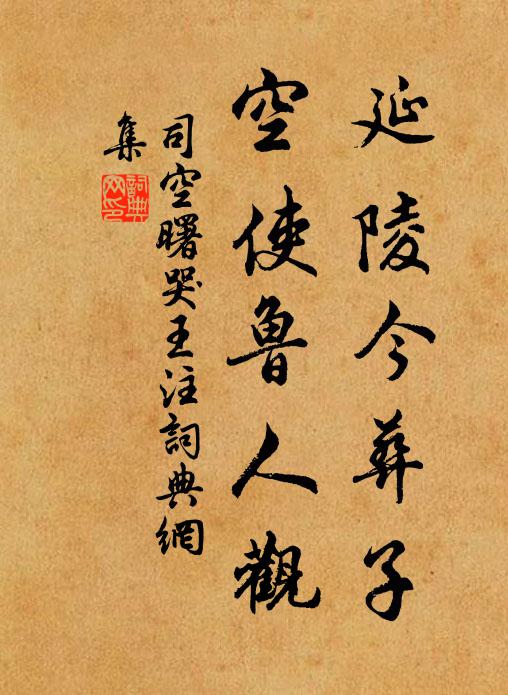 延陵今葬子
空使魯人觀
司空曙哭王注詞典網
集
詞典
网印